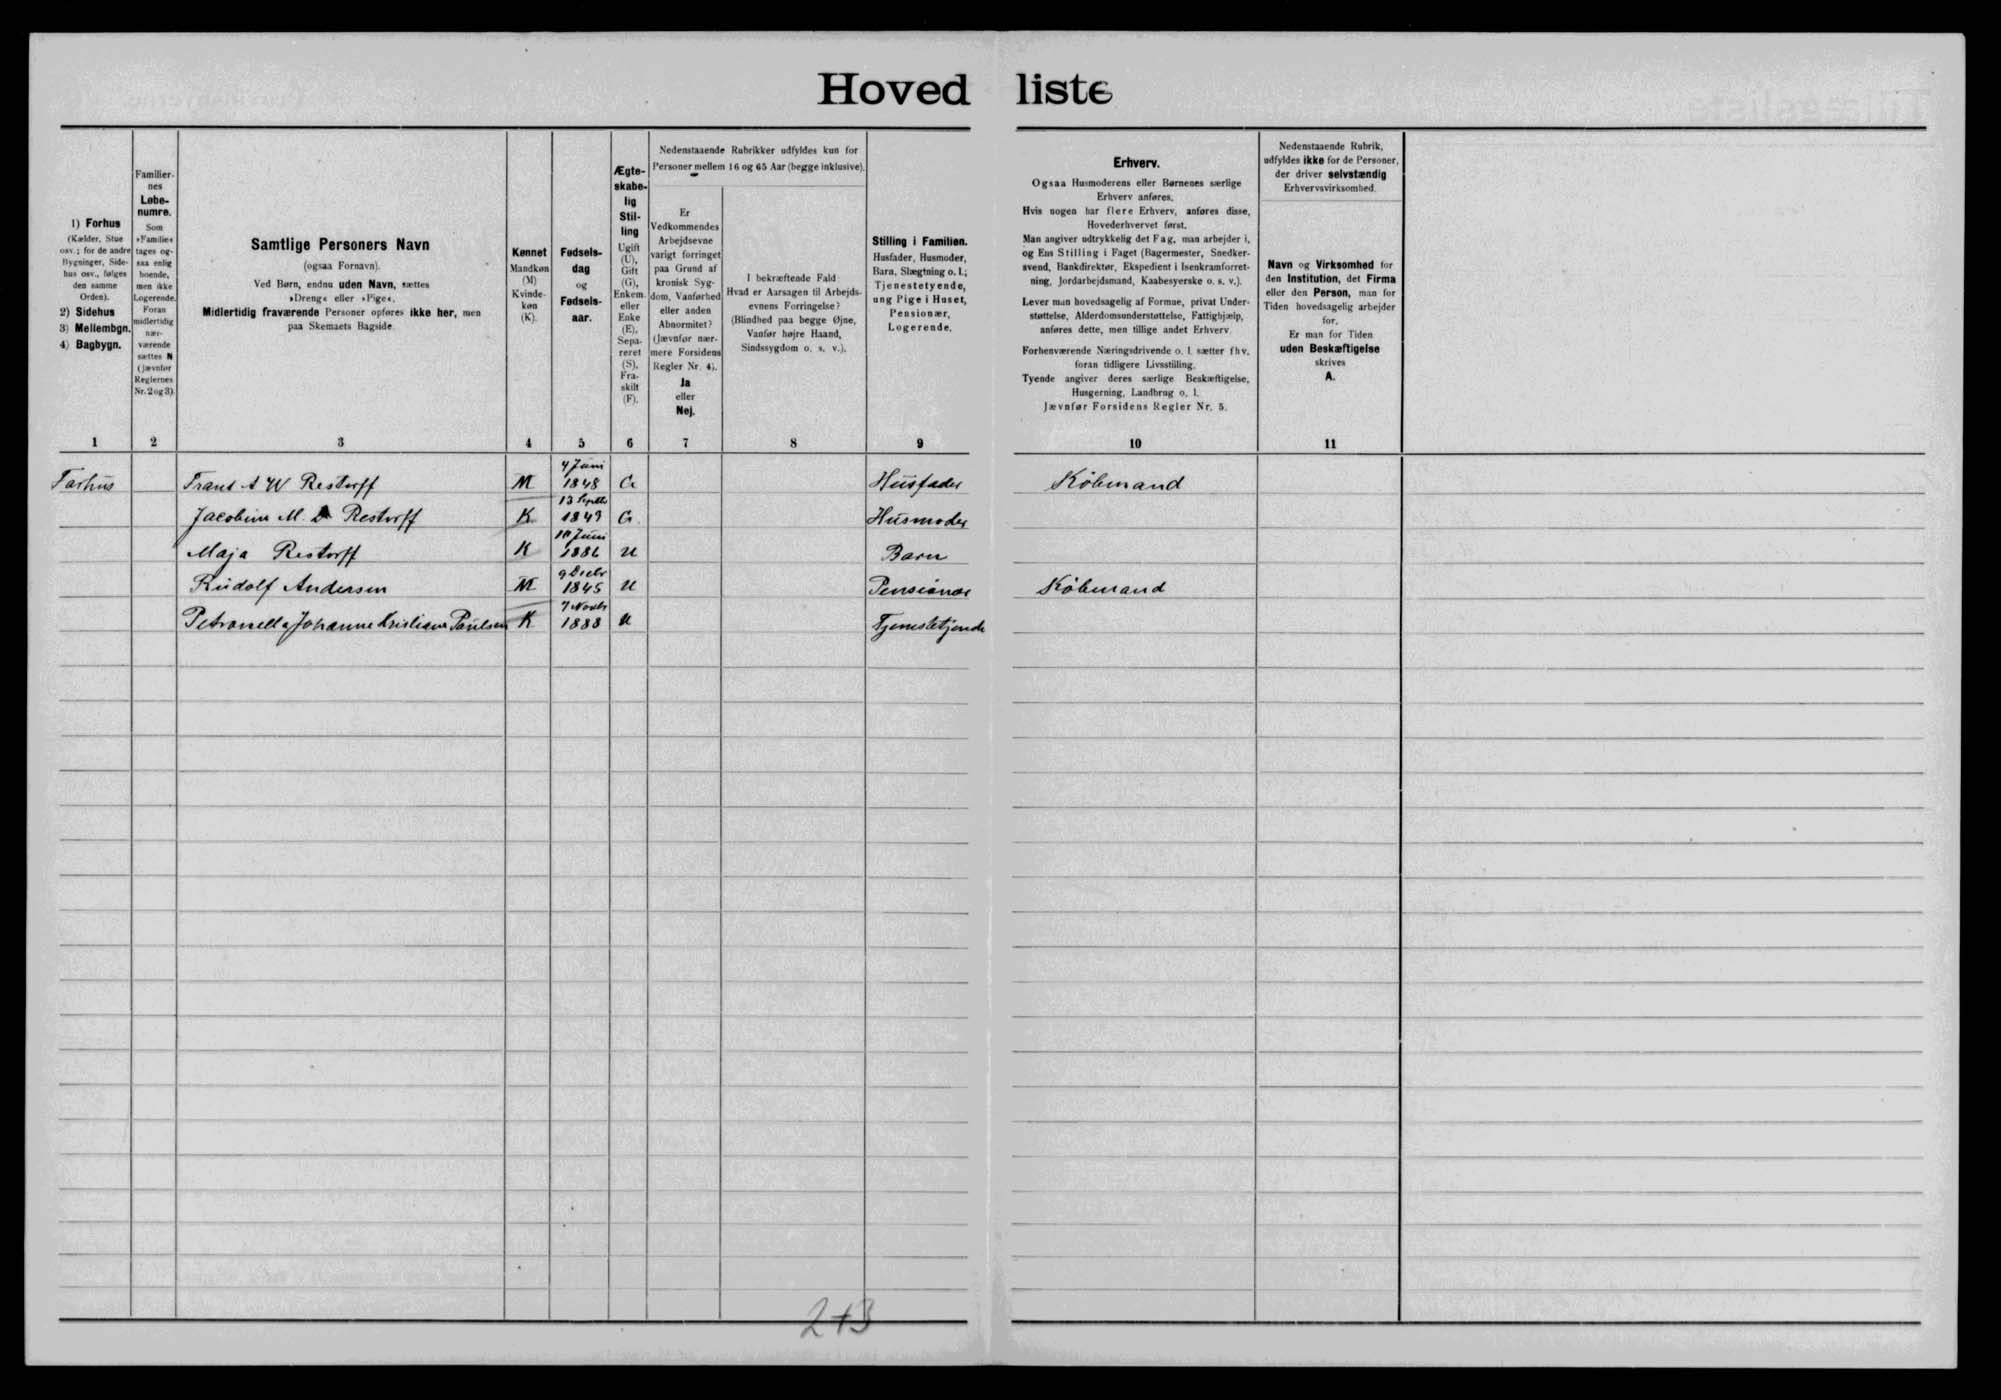 Hovedliste
1) Forhus
(Kælder, Stue
osv.; for de andre
Bygninger, Side-
hus osv., følges
den samme
Orden).
2) Sidehus
3) Mellembgn.
4) Bagbygn.
Familier-
nes
Løbe-
numre.
Som
»Familie«
tages og-
saa enlig
boende,
men ikke
Logerende.
Foran
midlertidig
nær-
værende
sættes N
(jævnfør
Reglernes
Nr. 2 og 3)
Samtlige Personers Navn
(ogsaa Fornavn).
Ved Børn, endnu uden Navn, sættes
»Dreng« eller »Pige«.
Midlertidig fraværende Personer opføres ikke her, men
paa Skemaets Bagside.
Kønnet
Mandkøn
(M)
Kvinde-
køn
(K).
Fødsels-
dag
og
Fødsels-
aar.
Ægte-
skabe-
lig
Stil-
ling
Ugift
(U),
Gift
(G),
Enkem.
eller
Enke
(E),
Sepa-
reret
(S),
Fra-
skilt
(F).
Nedenstaaende Rubrikker udfyldes kun for
Personer mellem 16 og 65 Aar (begge inklusive).
Er
Vedkommendes
Arbejdsevne
varigt forringet
paa Grund af
kronisk Syg-
dom, Vanførhed
eller anden
Abnormitet?
(Jævnfør nær-
mere Forsidens
Regler Nr. 4).
Ja
eller
Nej.
I bekræftende Fald:
Hvad er Aarsagen til Arbejds-
evnens Forringelse?
(Blindhed paa begge Øjne,
Vanfør højre Haand,
Sindssygdom o. s. v.).
Stilling i Familien.
Husfader, Husmoder,
Barn, Slægtning o. l.;
Tjenestetyende,
ung Pige i Huset,
Pensionær,
Logerende.
Erhverv.
Ogsaa Husmoderens eller Børnenes særlige
Erhverv anføres.
Hvis nogen har flere Erhverv, anføres disse,
Hovederhvervet først.
Man angiver udtrykkelig det Fag, man arbejder i,
og Ens Stilling i Faget (Bagermester, Snedker-
svend, Bankdirektør, Ekspedient i Isenkramforret-
ning, Jordarbejdsmand, Kaabesyerske o. s. v.).
Lever man hovedsagelig af Formue, privat Under-
støttelse, Alderdomsunderstøttelse, Fattighjælp,
anføres dette, men tillige andet Erhverv.
Forhenværende Næringsdrivende o. l. sætter fhv.
foran tidligere Livsstilling.
Tyende angiver deres særlige Beskæftigelse,
Husgerning, Landbrug o. l.
Jævnfør Forsidens Regler Nr. 5.
Nedenstaaende Rubrik,
udfyldes ikke for de Personer,
der driver selvstændig
Erhvervsvirksomhed.
Navn og Virksomhed for
den Institution, det Firma
eller den Person, man for
Tiden hovedsagelig arbejder
for.
Er man for Tiden
uden Beskæftigelse
skrives
A.
1 2 3 4 5 6 7 8 9 10 11
Forhus Frans A W Restorff M 4 Juni 1848 G Husfader Købmand
Jacobine M. D Restorff K 13 Septbr 1849 G. Husmoder
Maja Restorff K Juni 1886 U Barn
Rudolf Andersen M 9 Decbr 1845 U Pensionær Købmand
Petronella Johanne Kristiane Poulsen K 7 Novbr 1888 U Tjenestetjende
2+3